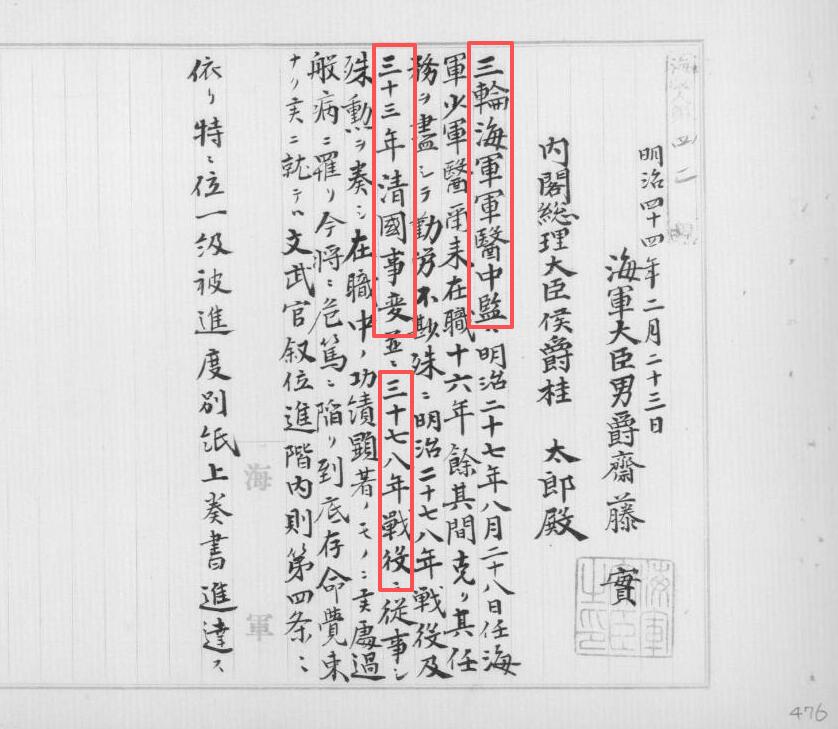 明治四十四年二月二十三日
海軍大臣男爵齋藤 實
内閣総理大臣侯爵桂 太郎殿
三輪海軍軍醫中監ハ明治二十七年八月二十八日任海
軍少軍醫爾来在職十六年餘其間克ク其任
務ヲ盡シテ勤労不尠殊ニ明治二十七八年戦役及
三十三年清國事変並ニ三十七八年戦役ニ従事シ
殊勲ヲ奏シ在職中ノ功績顕著ノモノニ有之處過
般病ニ罹リ今将ニ危篤ニ陥リ到底存命覺束
ナク候ニ就テハ文武官叙位進階内則第四条ニ
依リ特ニ位一級被進度別紙上奏書進達ス
海軍
476